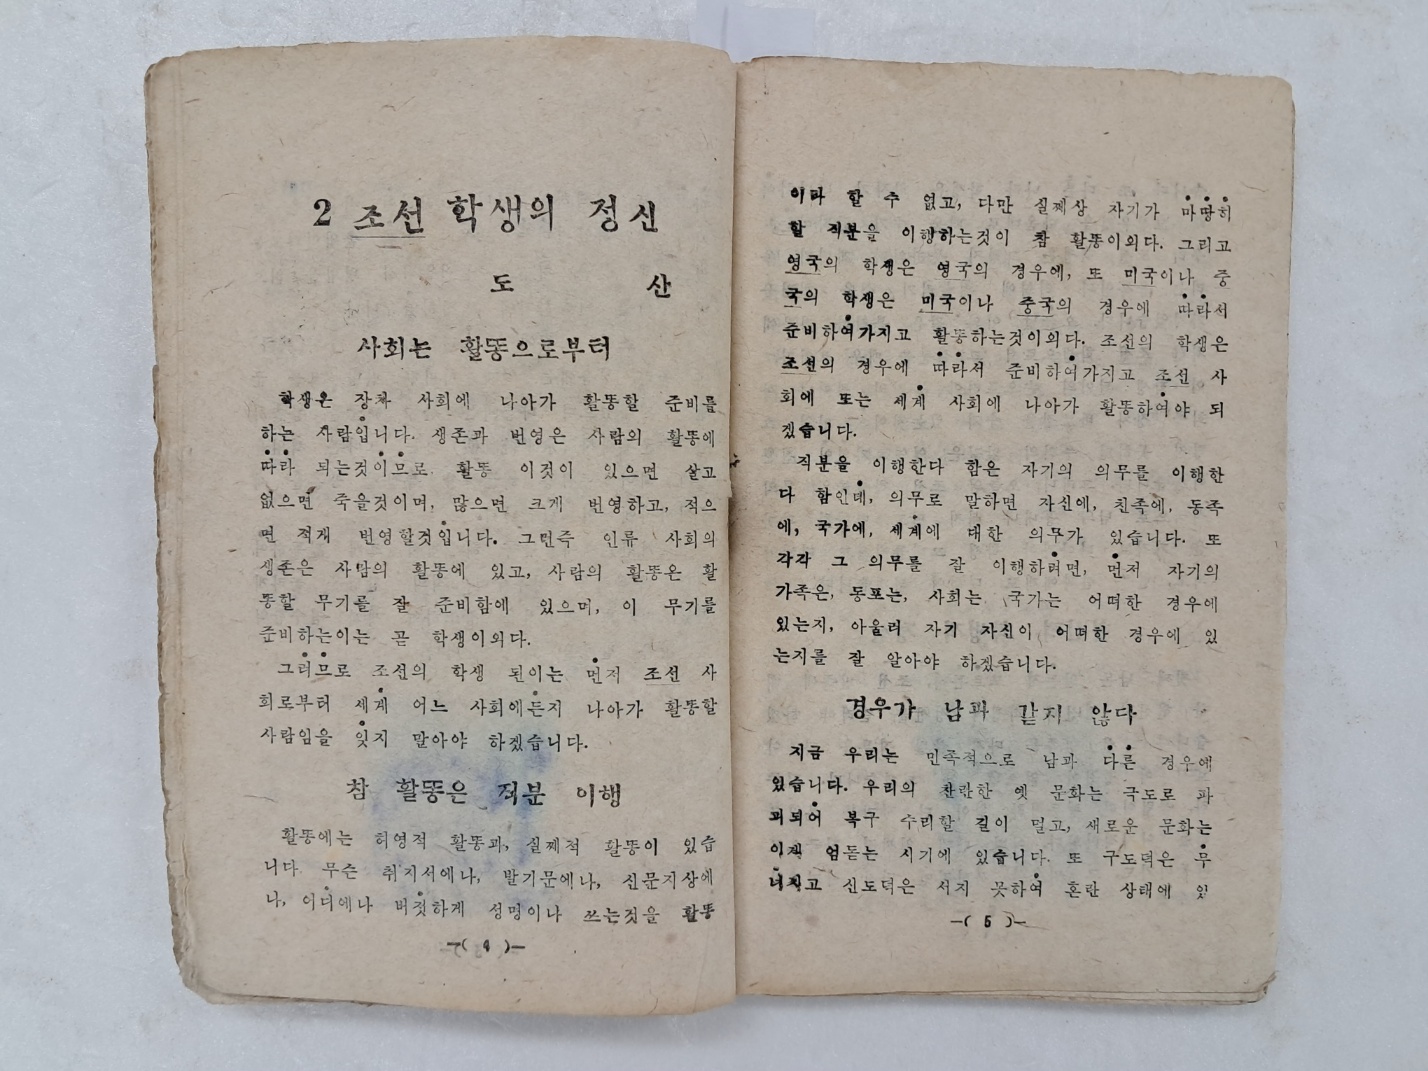 2 조선 학생의 정신
도 산
사회는 활똥으로부터
학생은 장차 사회에 나아가 활똥할 준비를
하는 사람입니다. 생존과 번영은 사람의 활똥에
따라 되는것이므로 활똥 이것이 있으면 살고
없으면 죽을것이며, 많으면 크게 번영하고, 적으
면 적게 번영할것입니다. 그런즉 인류 사회의
생존은 사람의 활똥에 있고, 사람의 활똥은 활
똥할 무기를 잘 준비함에 있으며, 이 무기를
준비하는이는 곧 학생이외다.
그러므로 조선의 학생 된이는 먼저 조선 사
회로부터 세계 어느 사회에든지 나아가 활똥할
사람임을 잊지 말아야 하겠습니다.
참 활똥은 직분 이행
활똥에는 허영적 활똥과, 실쩨적 활똥이 있습
니다 무슨 취지서에나, 발기문에나, 신문지상에
나, 어디에나 버젓하게 성명이나 쓰는것을 활똥
—( 4 )—
이라 할 수 없고, 다만 실쩨상 자기가 마땅히
할 직분을 이행하는것이 참 활똥이외다. 그리고
영국의 학생은 영국의 경우에, 또 미국이나 중
국의 학생은 미국이나 중국의 경우에 따라서
준비하여가지고 활똥하는것이외다. 조선의 학생은
조선의 경우에 따라서 준비하여가지고 조선 사
회에 또는 세계 사회에 나아가 활똥하여야 되
겠습니다.
직분을 이행한다 함은 자기의 의무를 이행한
다 함인데, 의무로 말하면 자신에, 친족에, 동족
에, 국가에, 세계에 대한 의무가 있습니다. 또
각각 그 의무를 잘 이행하려면, 먼저 자기의
가족은, 동포는, 사회는 국가는 어떠한 경우에
있는지, 아울러 자기 자신이 어떠한 경우에 있
는지를 잘 알아야 하겠습니다.
경우가 남과 같지 않다
지금 우리는 민족적으로 남과 다른 경우에
있습니다. 우리의 찬란한 옛 문화는 극도로 파
괴되어 복구 수리할 길이 멀고, 새로운 문화는
이제 엄돋는 시기에 있습니다. 또 구도덕은 무
너지고 신도덕은 서지 못하여 혼란 상태에 있
—( 5 )—